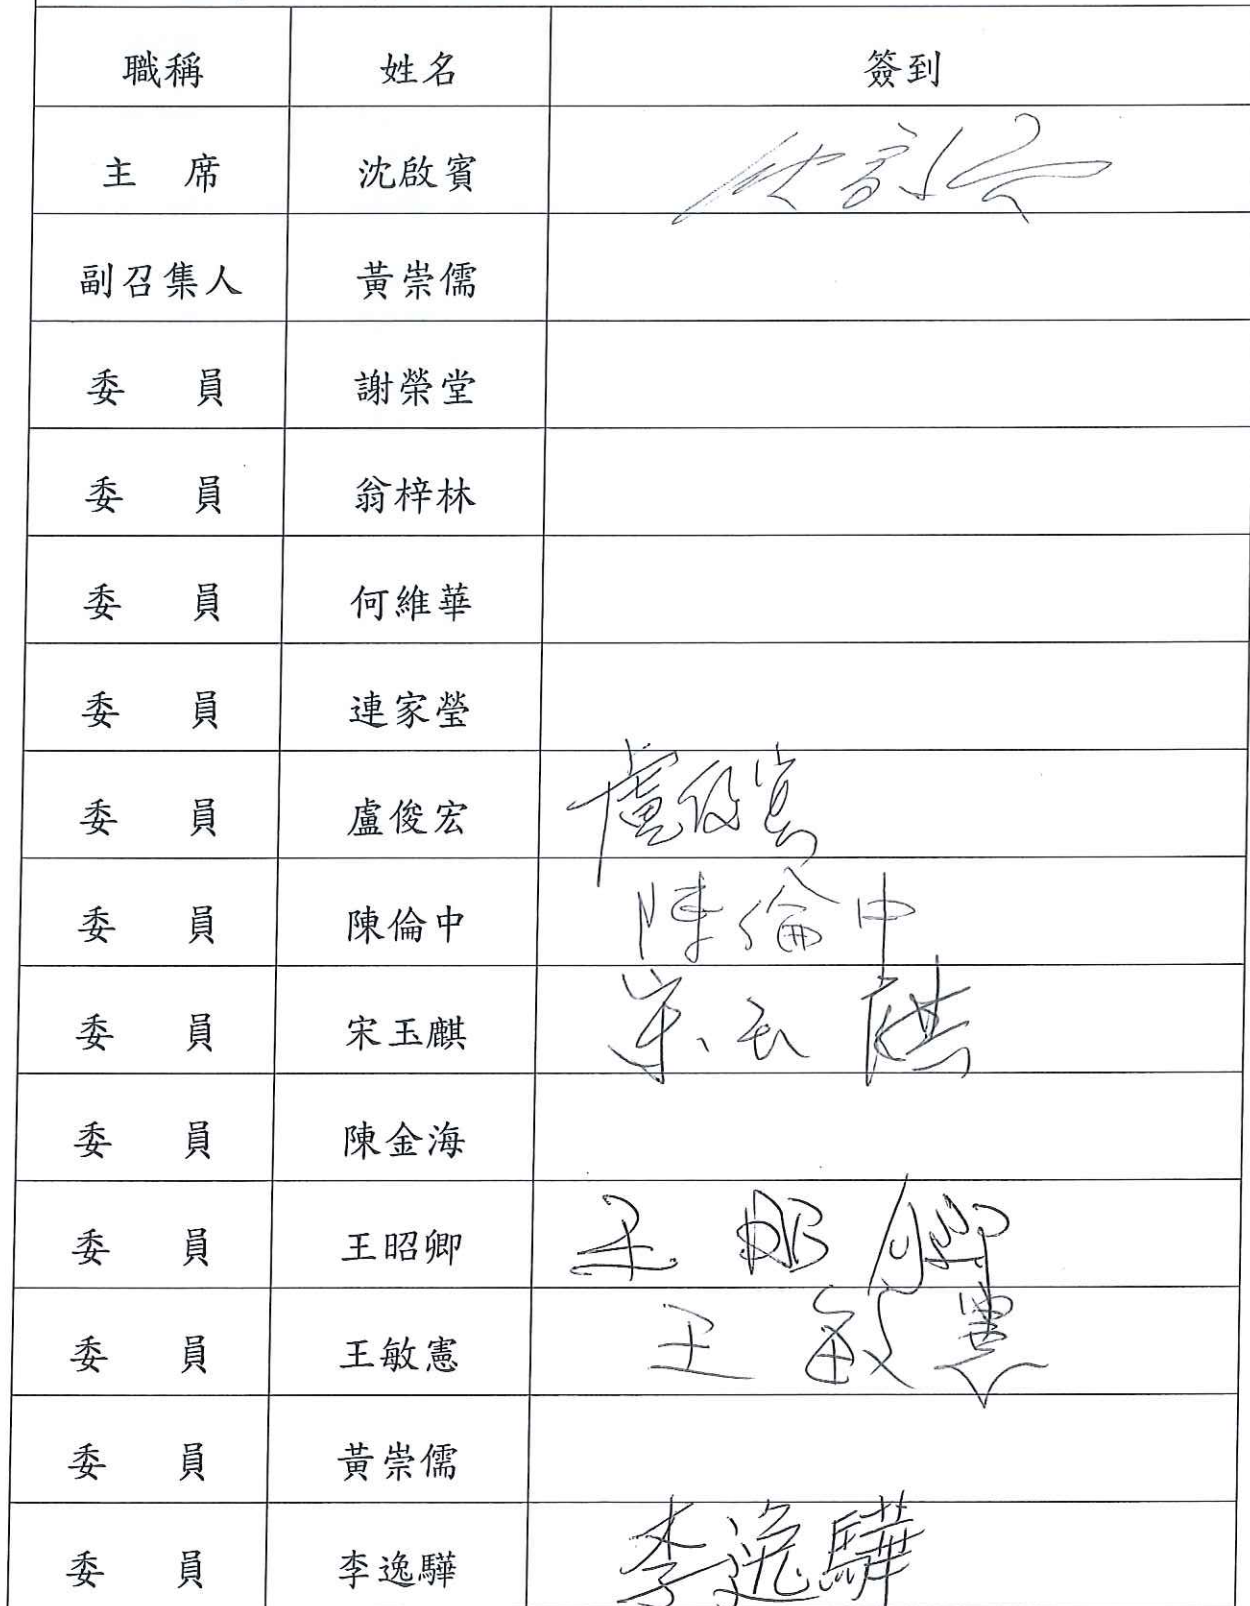 職稱 姓名 簽到
主 席 沈啟賓
副召集人 黃崇儒
委 員 謝榮堂
委 員 翁梓林
委 員 何維華
委 員 連家瑩
委 員 盧俊宏 盧俊宏
委 員 陳倫中 陳倫中
委 員 宋玉麒 宋玉麒
委 員 陳金海
委 員 王昭卿 王昭卿
委 員 王敏憲 王敏憲
委 員 黃崇儒
委 員 李逸驊 李逸驊